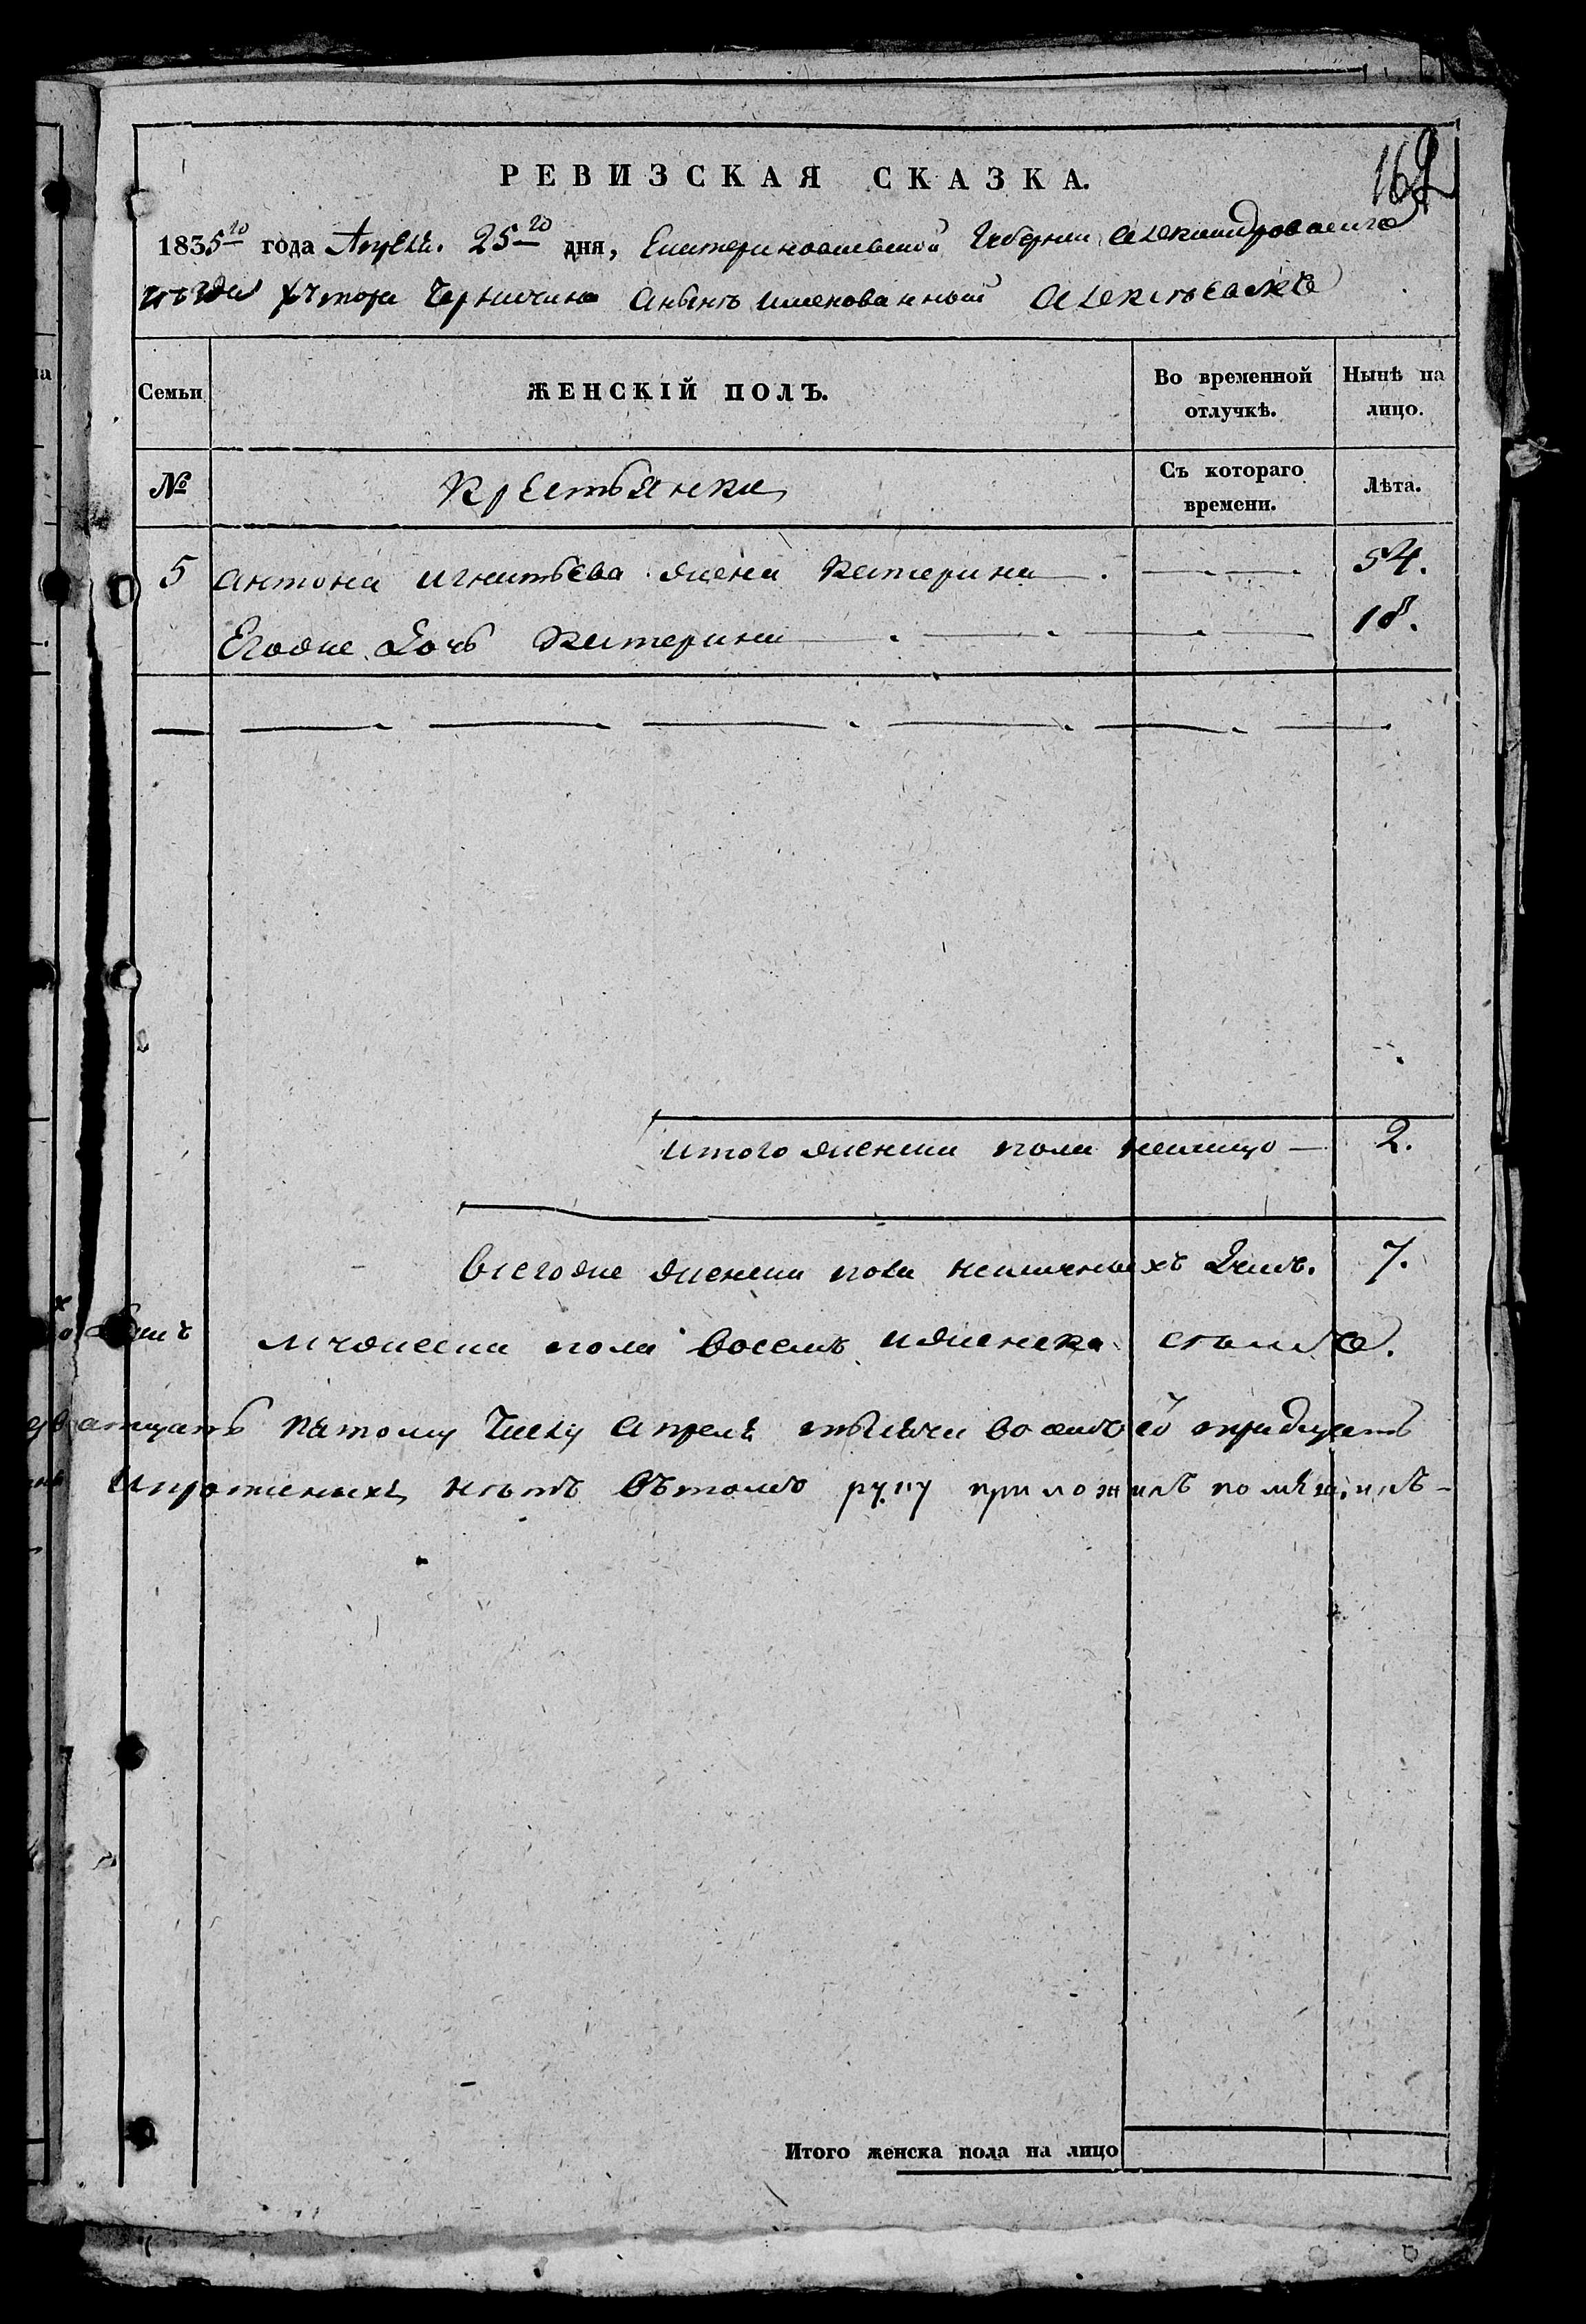 162
РЕВИЗСКАЯ СКАЗКА.
1835го года Апреля. 25го дня, Екатеринославской Губернии Александровского
уезда хутора анынъ именованный Алексѣевке
Семьи ЖЕНСКІЙ ПОЛЪ. Во временной отлучкѣ. Нынѣ на лицо.
№ Крестьянки Съ котораго времени. Лѣта.
5 Антона игнатьева жена Катерина 54.
Егоже Дочь Катерина 18.
Итого женска пола налицо 2.
Всегоже женска пола наличныхъ Душъ. 7.
мужеска пола восемь иженска
атщать пятому Числу Апреля тысячи восимъ сотъ тридцать
ипрописныхъ нѣтъ Вътомъ руку приложилъ помѣщикъ
Итого женска пола на лицо